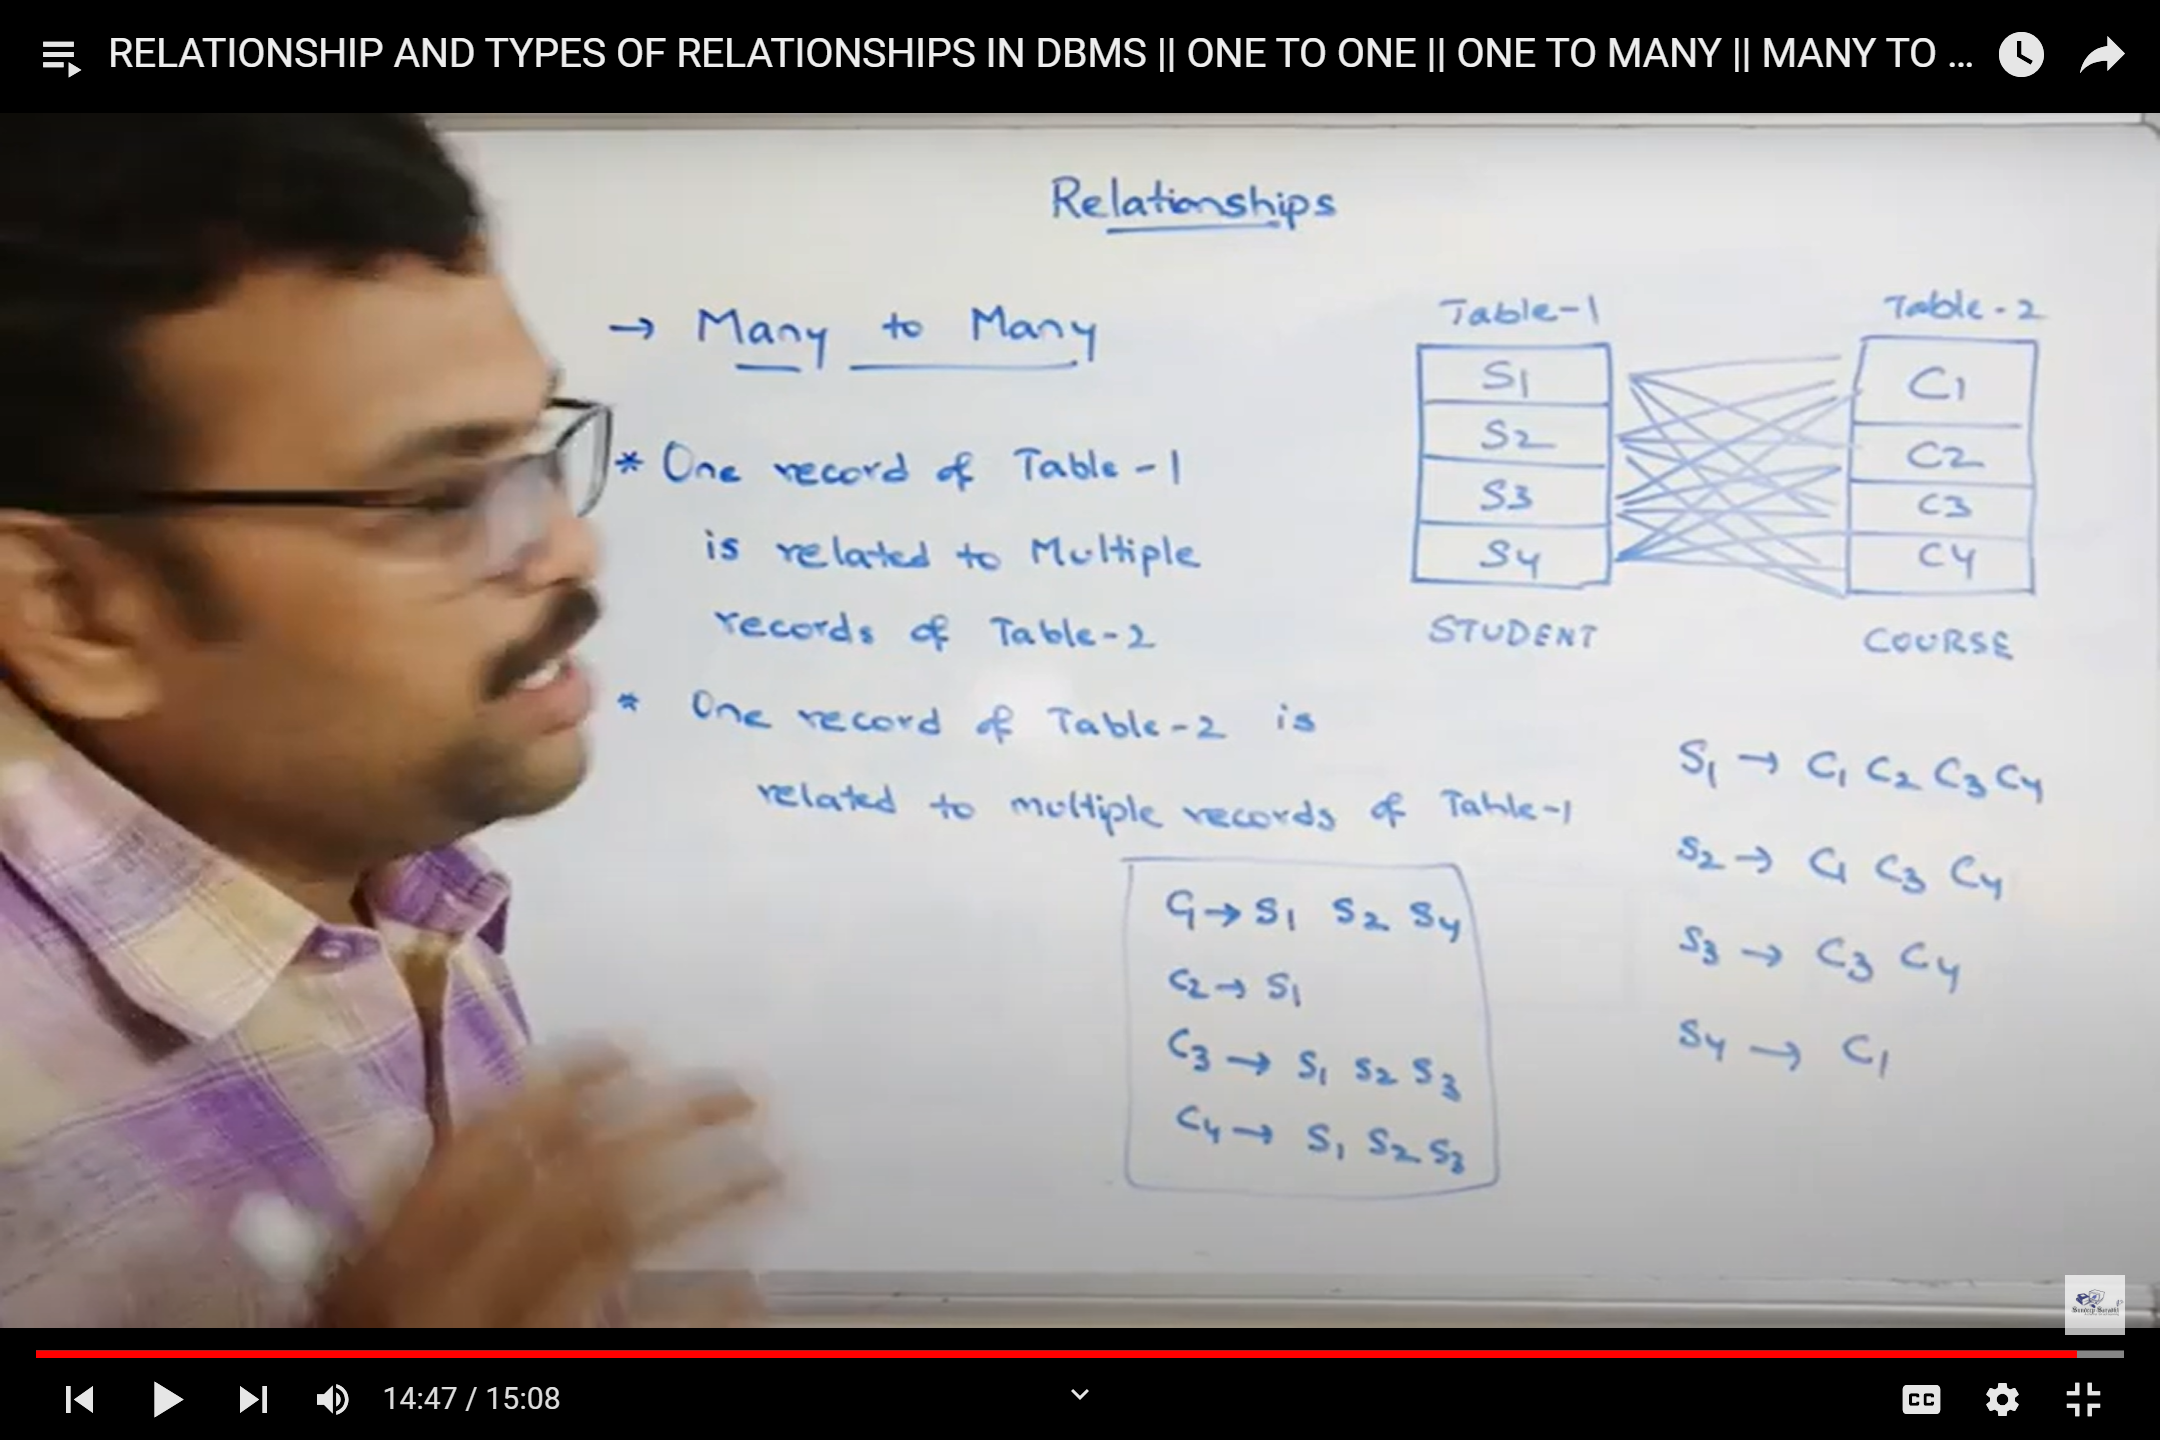 RELATIONSHIP AND TYPES OF RELATIONSHIPS IN DBMS || ONE TO ONE || ONE TO MANY || MANY TO ...
Relationships
→ Many to Many
* One record of Table-1
is related to Multiple
records of Table-2
* One record of Table-2 is
related to multiple records of Table-1
Table-1
S1
S2
S3
S4
STUDENT
Table-2
C1
C2
C3
C4
COURSE
C1 → S1 S2 S4
C2 → S1
C3 → S1 S2 S3
C4 → S1 S2 S3
S1 → C1 C2 C3 C4
S2 → C1 C3 C4
S3 → C3 C4
S4 → C1
14:47 / 15:08
CC